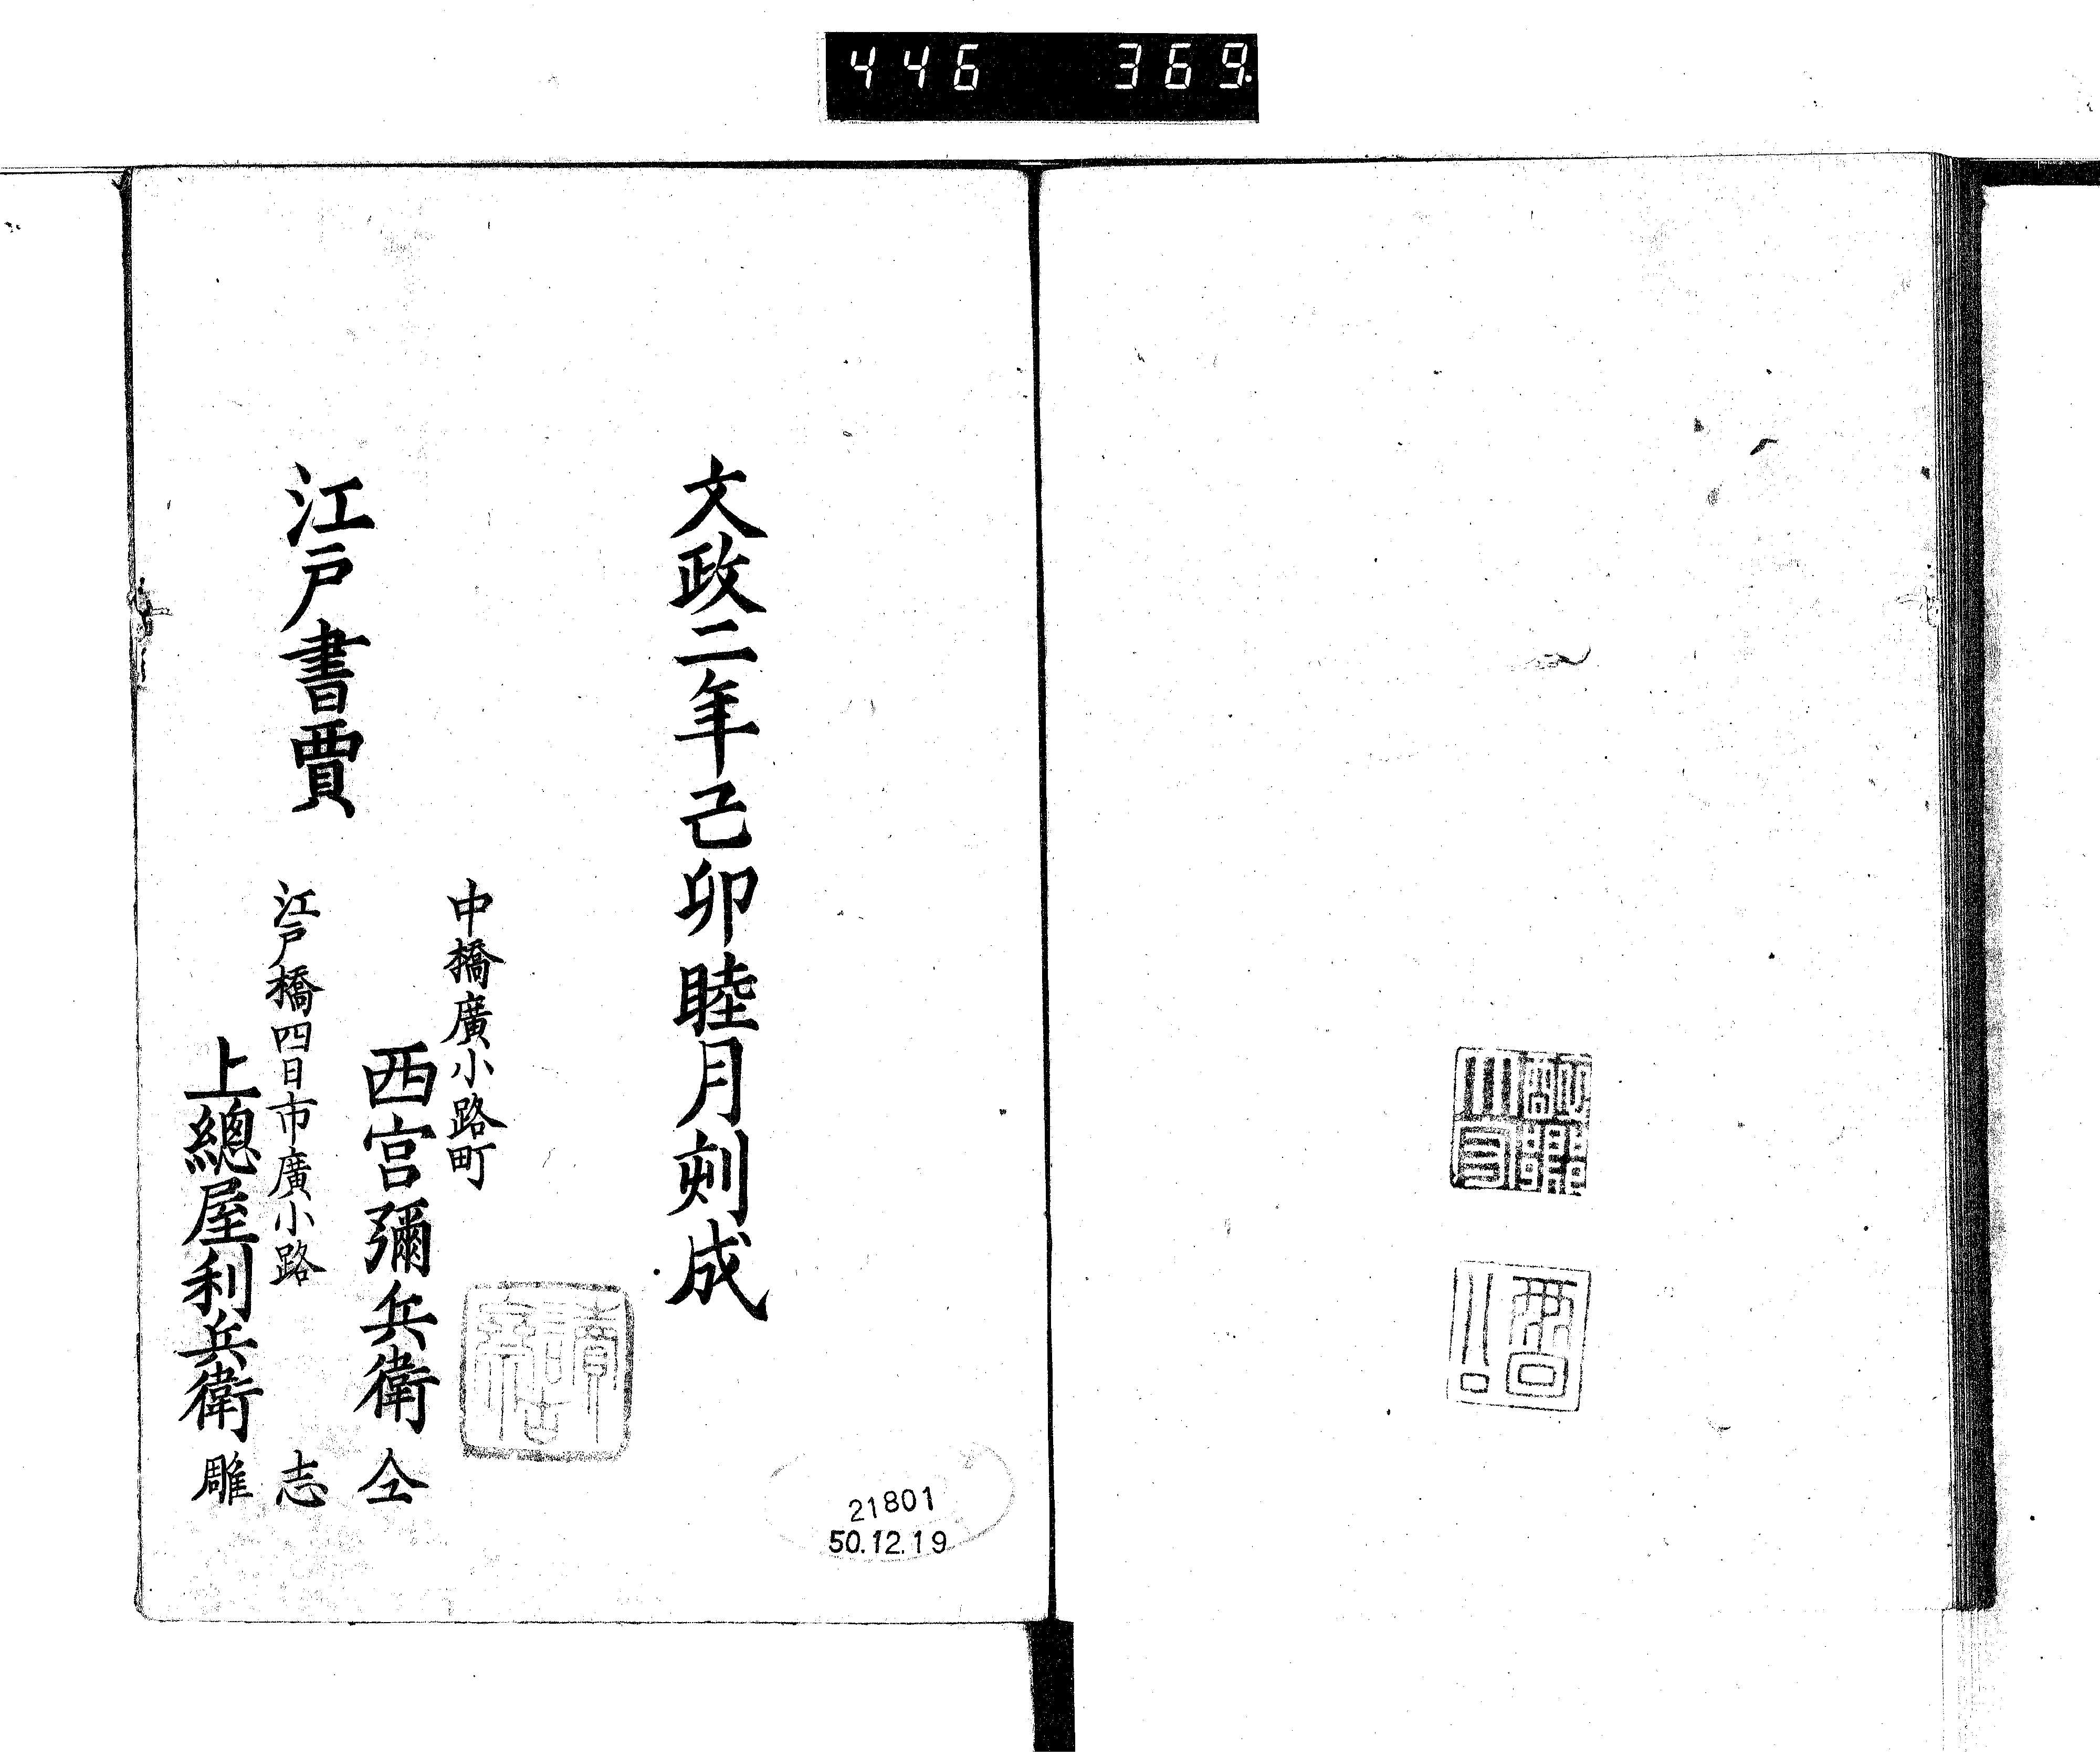 446 369.
文政二年己卯睦月刻成
江戸書賈
中橋廣小路町
西宮彌兵衛 仝
江戸橋四日市廣小路 志
上總屋利兵衛 雕
21801
50.12.19